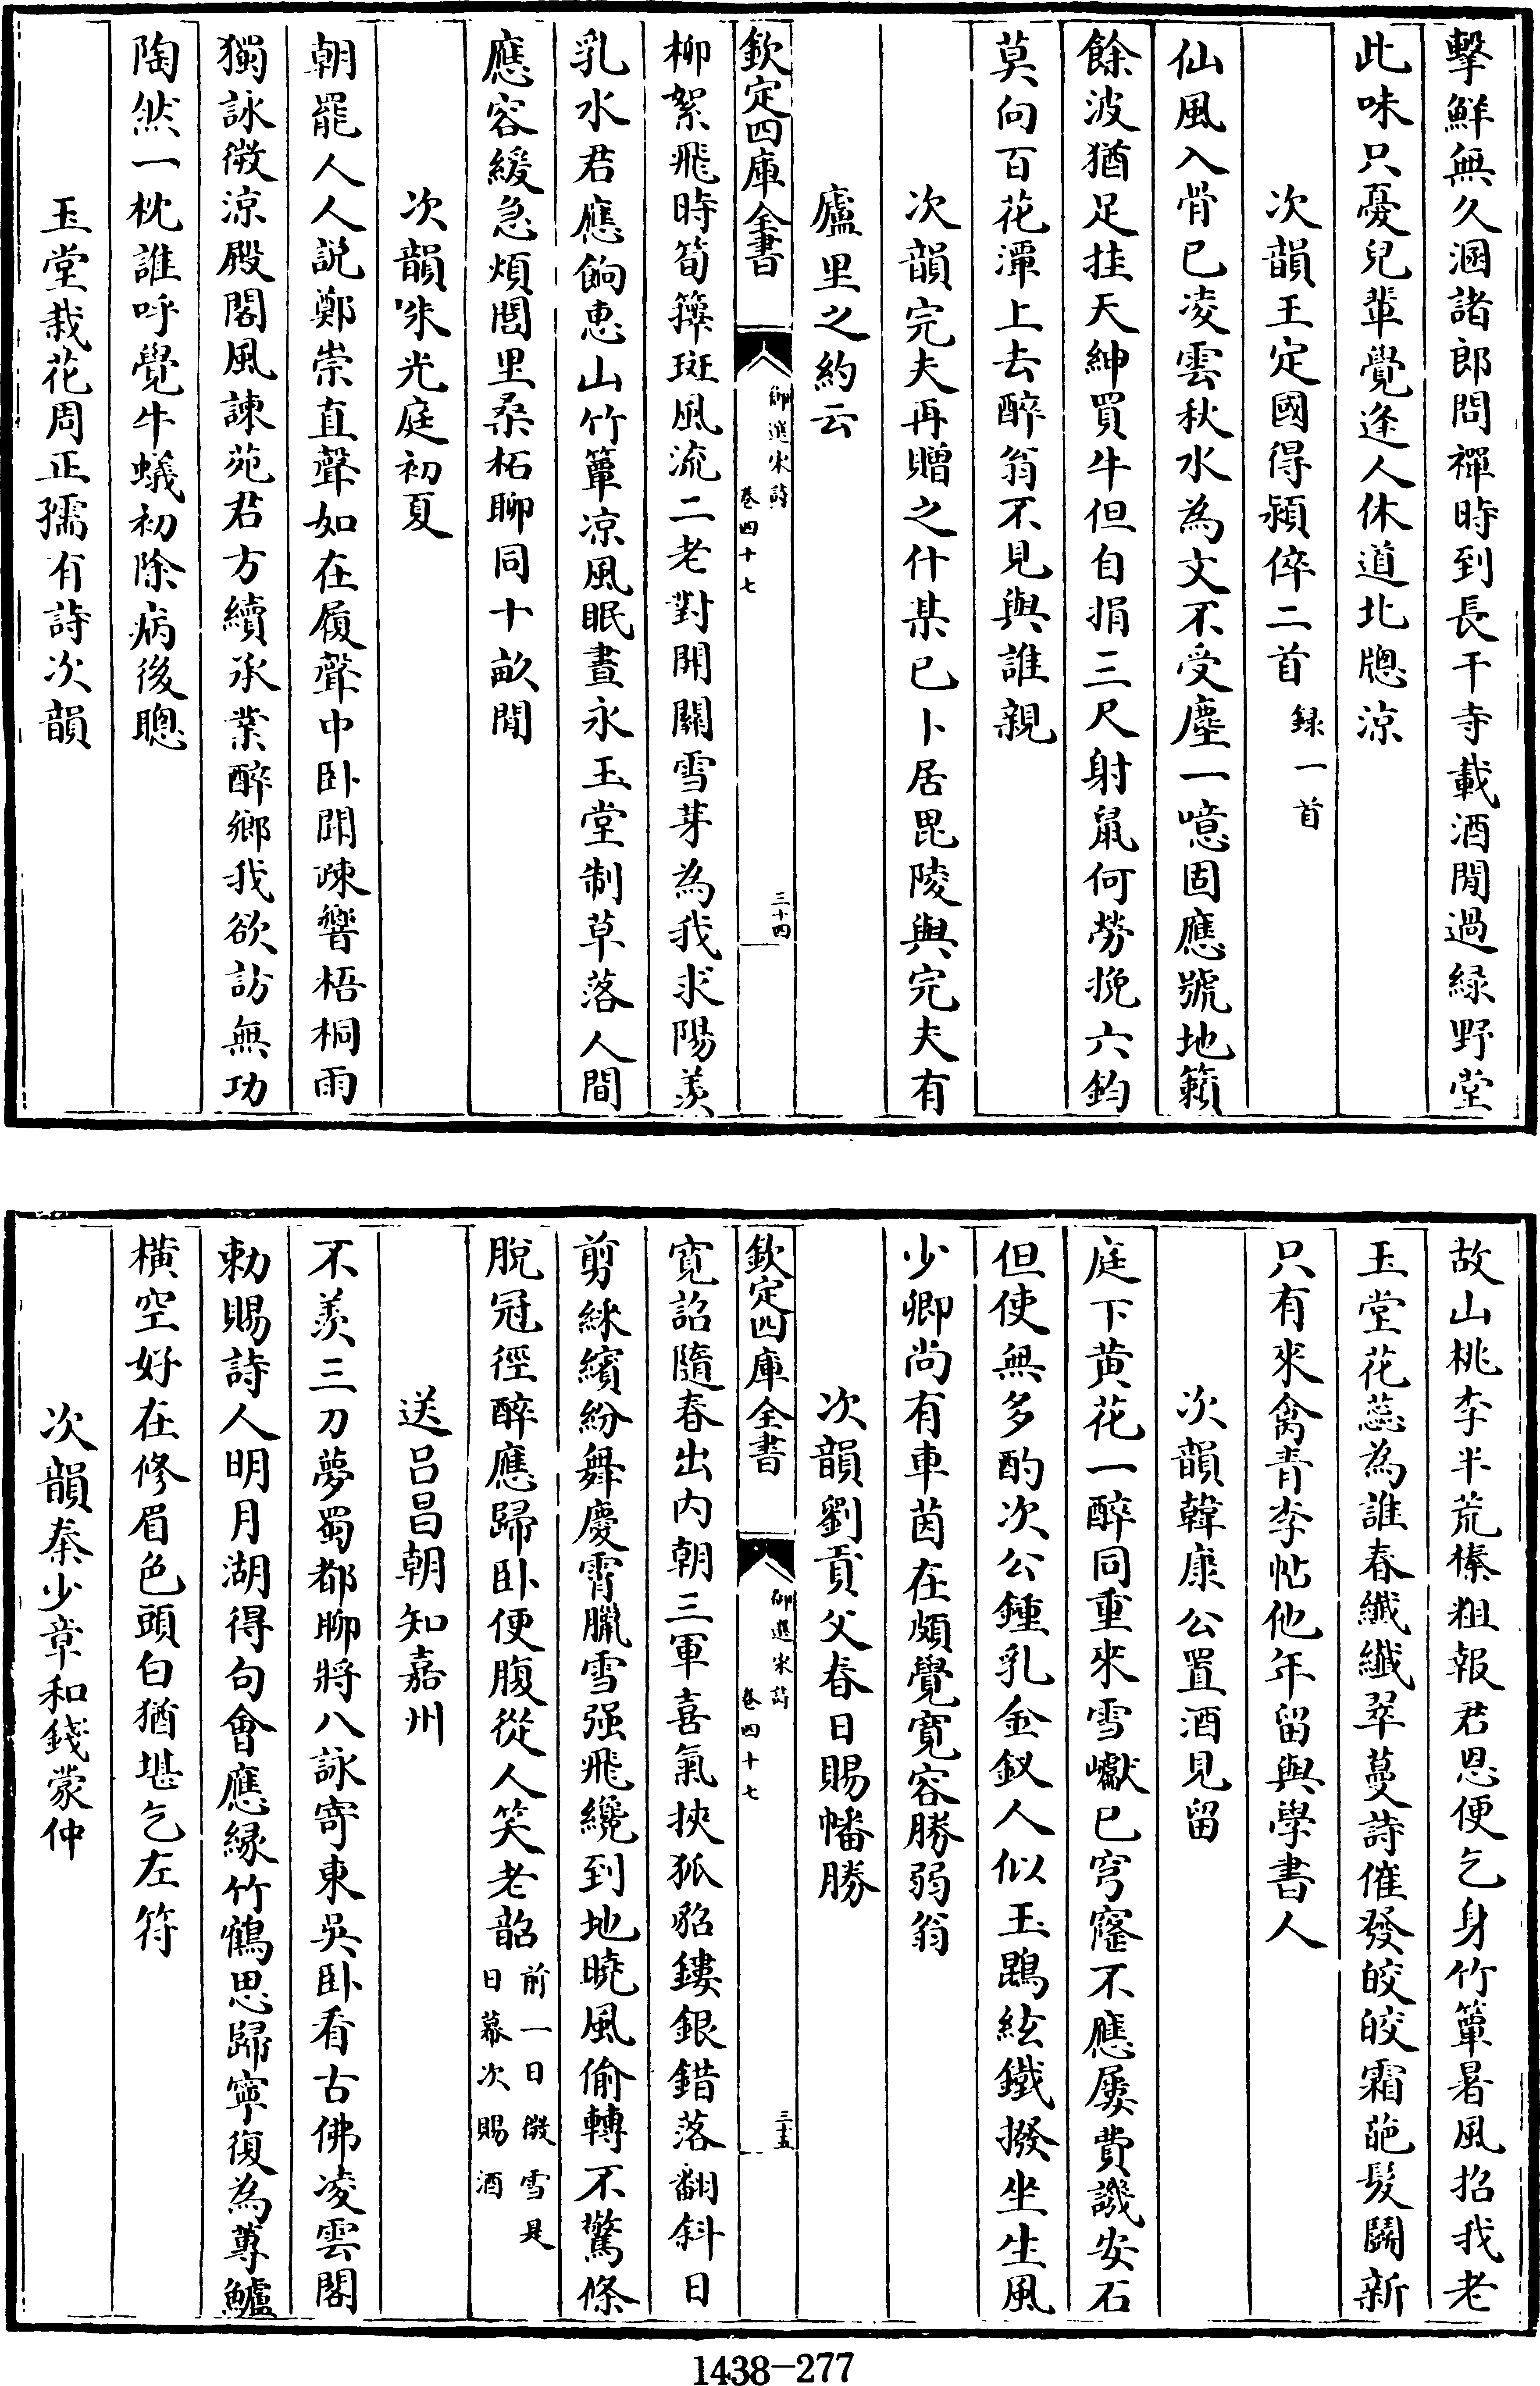 擊鮮無久溷諸郎問禪時到長干寺載酒閒過緑野堂
此味只憂兒輩覺逢人休道北牕涼
次韻王定國得潁倅二首録一首
仙風入骨已凌雲秋水為文不受塵一噫固應號地籟
餘波猶足挂天紳買牛但自捐三尺射鼠何勞挽六鈞
莫向百花潭上去醉翁不見與誰親
次韻完夫再贈之什某已卜居毘陵與完夫有
廬里之約云
欽定四庫全書
御選宋詩
卷四十七
三十四
柳絮飛時筍籜斑風流二老對開關雪芽為我求陽羨
乳水君應餉惠山竹簟凉風眠晝永玉堂制草落人間
應容緩急煩閭里桑柘聊同十畝閒
次韻朱光庭初夏
朝罷人人説鄭崇直聲如在履聲中卧聞疎響梧桐雨
獨詠微涼殿閣風諫苑君方續承業醉鄉我欲訪無功
陶然一枕誰呼覺牛蟻初除病後聰
玉堂栽花周正孺有詩次韻
故山桃李半荒榛粗報君恩便乞身竹簟暑風招我老
玉堂花蕊為誰春纖纖翠蔓詩催發皎皎霜葩髮鬭新
只有來禽青李帖他年留與學書人
次韻韓康公置酒見留
庭下黄花一醉同重來雪巘已穹窿不應屢費譏安石
但使無多酌次公鍾乳金釵人似玉鵾絃鐵撥坐生風
少卿尚有車茵在頗覺寛容勝弱翁
次韻劉貢父春日賜幡勝
欽定四庫全書
御選宋詩
卷四十七
三十五
寛詔隨春出内朝三軍喜氣挾狐貂鏤銀錯落翻斜日
剪綵繽紛舞慶霄臘雪强飛纔到地曉風偷轉不驚條
脫冠徑醉應歸卧便腹從人笑老韶前一日微雪是
日幕次賜酒
送吕昌朝知嘉州
不羨三刀夢蜀都聊將八詠寄東吳卧看古佛凌雲閣
勅賜詩人明月湖得句會應緣竹鶴思歸寧復為蓴鱸
橫空好在修眉色頭白猶堪乞左符
次韻秦少章和錢蒙仲
1438-277